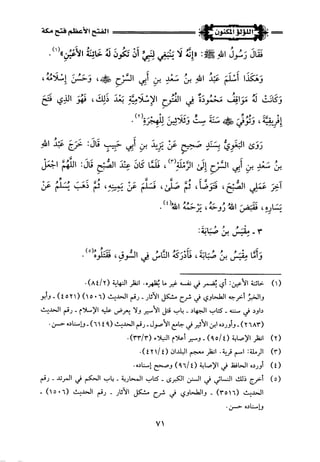 اللؤلؤ المكنون
الفتح الأعظم فتح مكة
فقال رسول الله ﷺ: «إنه لا ينبغي لنبي أن تكون له خائنة الأعين»(١).
وهكذا أسلم عبد الله بن سعد بن أبي السرح ﷺ، وحسن إسلامه،
وكانت له مواقف محمودة في الفتوح الإسلامية بعد ذلك، فهو الذي فتح
إفريقية، وتوفي ﷺ سنة ست وثلاثين للهجرة(٢).
روى البغوي بسند صحيح عن يزيد بن أبي حبيب قال: خرج عبد الله
بن سعد بن أبي السرح إلى الرملة(٣)، فلما كان عند الصبح قال: اللهم اجعل
آخر عملي الصبح، فتوضأ، ثم صلى، فسلم عن يمينه، ثم ذهب يسلم عن
يساره، فقبض الله روحه، يرحمه الله(٤).
٣ - مقيس بن صبابة:
وأما مقيس بن صبابة، فأدركه الناس في السوق، فقتلوه(٥).
(١) خائنة الأعين: أي يضمر في نفسه غير ما يظهره. انظر النهاية (٨٤/٢).
والخبر أخرجه الطحاوي في شرح مشكل الآثار - رقم الحديث (١٥٠٦) (٤٥٢١) - وأبو
داود في سننه - كتاب الجهاد - باب قتل الأسير ولا يعرض عليه الإسلام - رقم الحديث
(٢٦٨٣) - وأورده ابن الأثير في جامع الأصول - رقم الحديث (٦١٤٩) - وإسناده حسن.
(٢) انظر الإصابة (٩٥/٤) - وسير أعلام النبلاء (٣٣/٣).
(٣) الرملة: اسم قرية. انظر معجم البلدان (٤٢١/٤).
(٤) أورده الحافظ في الإصابة (٩٦/٤) وصحح إسناده.
(٥) أخرج ذلك النسائي في السنن الكبرى - كتاب المحاربة - باب الحكم في المرتد - رقم
الحديث (٣٥١٦) - والطحاوي في شرح مشكل الآثار - رقم الحديث (١٥٠٦) -
وإسناده حسن.
٧١